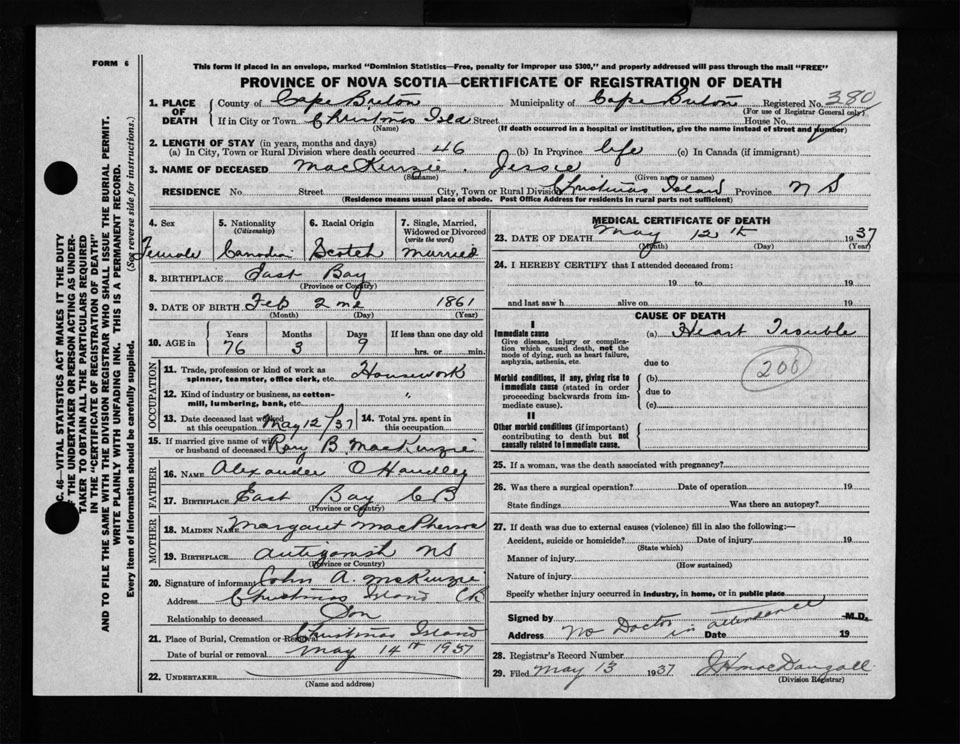 FORM 6
This form if placed in an envelope, marked "Dominion Statistics—Free, penalty for improper use $300," and properly addressed will pass through the mail "FREE"
PROVINCE OF NOVA SCOTIA—CERTIFICATE OF REGISTRATION OF DEATH
1. PLACE OF DEATH { County of Cape Breton Municipality of Cape Breton Registered No. 380
(For use of Registrar General only)
If in City or Town Christmas Isld Street House No.
(Name) (If death occurred in a hospital or institution, give the name instead of street and number)
2. LENGTH OF STAY (in years, months and days)
(a) In City, Town or Rural Division where death occurred 46 (b) In Province life (c) In Canada (if immigrant)
3. NAME OF DECEASED MacKenzie. Jessie
(Surname) (Given name or names)
RESIDENCE No. Street City, Town or Rural Division Christmas Island Province N S
(Residence means usual place of abode. Post Office Address for residents in rural parts not sufficient)
4. Sex Female
5. Nationality (Citizenship) Canadian
6. Racial Origin Scotch
7. Single, Married, Widowed or Divorced (write the word) Married
8. BIRTHPLACE East Bay
(Province or Country)
9. DATE OF BIRTH Feb 2 1861
(Month) (Day) (Year)
10. AGE Years 76 Months 3 Days 9 If less than one day old hrs. or min.
OCCUPATION
11. Trade, profession or kind of work as spinner, teamster, office clerk, etc. Housework
12. Kind of industry or business, as cotton-mill, lumbering, bank, etc. "
13. Date deceased last worked at this occupation May 12/37 14. Total yrs. spent in this occupation
15. If married give name of wife or husband of deceased B. MacKenzie
FATHER
16. NAME Alexander O Handley
17. BIRTHPLACE East Bay C B
(Province or Country)
MOTHER
18. MAIDEN NAME Margaret MacPherson
19. BIRTHPLACE Antigonish NS
(Province or Country)
20. Signature of informant John A. McKenzie
Address Christmas Island CB
Relationship to deceased Son
21. Place of Burial, Cremation or Removal Christmas Island
Date of burial or removal May 14th 1937
22. UNDERTAKER
(Name and address)
MEDICAL CERTIFICATE OF DEATH
23. DATE OF DEATH May 12th 1937
(Month) (Day) (Year)
24. I HEREBY CERTIFY that I attended deceased from:
19 to 19
and last saw h alive on 19
CAUSE OF DEATH
I
Immediate cause (a) Heart Trouble
Give disease, injury or complication which caused death, not the mode of dying, such as heart failure, asphyxia, asthenia, etc.
due to
200
Morbid conditions, if any, giving rise to immediate cause (stated in order proceeding backwards from immediate cause).
(b)
due to
(c)
II
Other morbid conditions (if important) contributing to death but not causally related to immediate cause.
25. If a woman, was the death associated with pregnancy?
26. Was there a surgical operation? Date of operation 19
State findings Was there an autopsy?
27. If death was due to external causes (violence) fill in also the following:—
Accident, suicide or homicide? Date of injury 19
(State which)
Manner of injury
(How sustained)
Nature of injury
Specify whether injury occurred in industry, in home, or in public place
Signed by M.D.
No Doctor in attendance
Address Date 19
28. Registrar's Record Number
29. Filed May 13 1937 J H MacDougall
(Division Registrar)
C. 46—VITAL STATISTICS ACT MAKES IT THE DUTY
OF THE UNDERTAKER OR PERSON ACTING AS UNDER-
TAKER TO OBTAIN ALL THE PARTICULARS REQUIRED
IN THE "CERTIFICATE OF REGISTRATION OF DEATH"
AND TO FILE THE SAME WITH THE DIVISION REGISTRAR WHO SHALL ISSUE THE BURIAL PERMIT.
WRITE PLAINLY WITH UNFADING INK. THIS IS A PERMANENT RECORD.
Every item of information should be carefully supplied. (See reverse side for instructions.)